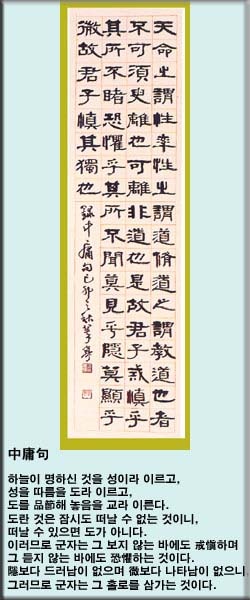 天命之謂性率性之謂道脩道之謂教道也者
不可須臾離也可離非道也是故君子戒慎乎
其所不睹恐懼乎其所不聞莫見乎隱莫顯乎
微故君子慎其獨也
錄中庸句己卯之秋
中庸句
하늘이 명하신 것을 성이라 이르고,
성을 따름을 도라 이르고,
도를 品節해 놓음을 교라 이른다.
도란 것은 잠시도 떠날 수 없는 것이니,
떠날 수 있으면 도가 아니다.
이러므로 군자는 그 보지 않는 바에도 戒愼하며
그 듣지 않는 바에도 恐懼하는 것이다.
隱보다 드러남이 없으며 微보다 나타남이 없으니
그러므로 군자는 그 홀로를 삼가는 것이다.